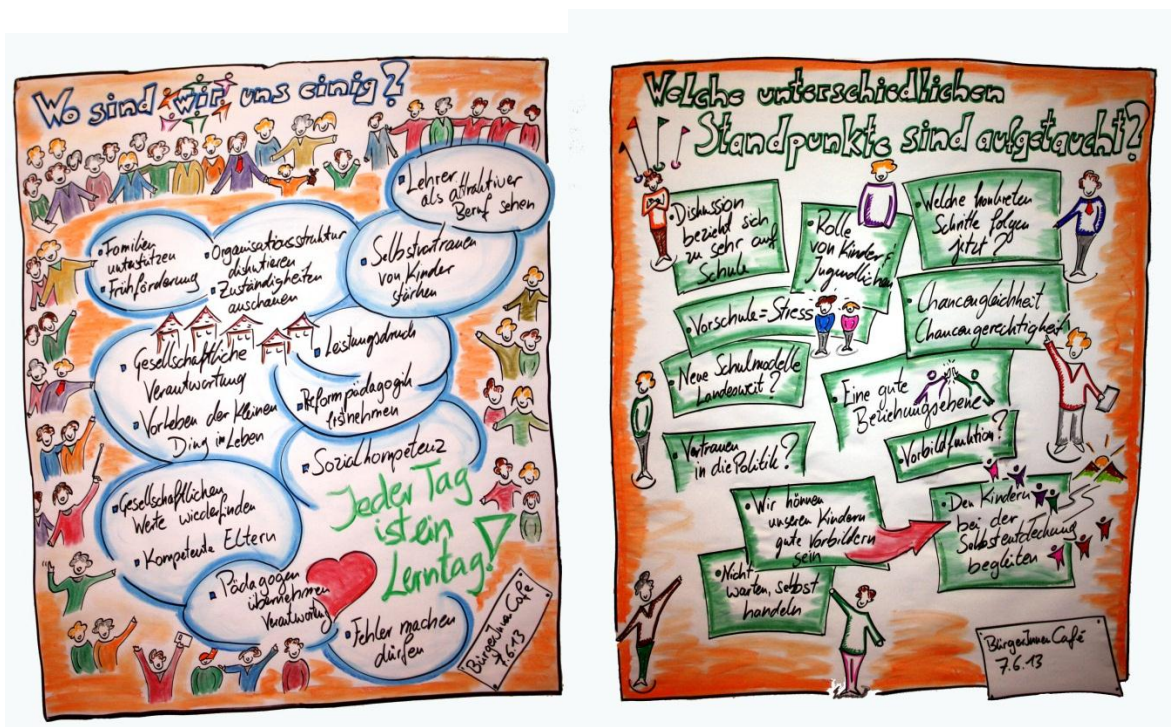 Wo sind wir uns einig?
• Lehrer
als attraktiver
Beruf sehen
• Familien
unterstützen
• Frühförderung
• Organisationsstruktur
diskutieren
• Zuständigkeiten
anschauen
• Selbstvertrauen
von Kinder
stärken
• Gesellschaftliche
Verantwortung
• Vorleben der kleinen
Ding im Leben
• Leistungsdruck
• Reformpädagogik
ernstnehmen
• Sozialkompetenz
• Gesellschaftlichen
Werte wiederfinden
• Kompetente Eltern
Jeder Tag
ist ein
Lerntag!
• Pädagogen
übernehmen
Verantwortung
• Fehler machen
dürfen
BürgerInnen Café
7.6.13
Welche unterschiedlichen
Standpunkte sind aufgetaucht?
• Diskussion
bezieht sich
zu sehr auf
Schule
• Rolle
von Kinder/
Jugendlichen
• Welche konkreten
Schritte folgen
jetzt?
• Vorschule = Stress
• Chancengleichheit
Chancengerechtigkeit
• Neue Schulmodelle
Landesweit?
• Eine gute
Beziehungsebene
• Vertrauen
in die Politik?
• Vorbildfunktion?
• Wir können
unseren Kindern
gute Vorbildern
sein
• Den Kindern
bei der
Selbstentdeckung
begleiten
• Nicht
warten, selbst
handeln
BürgerInnen Café
7.6.13